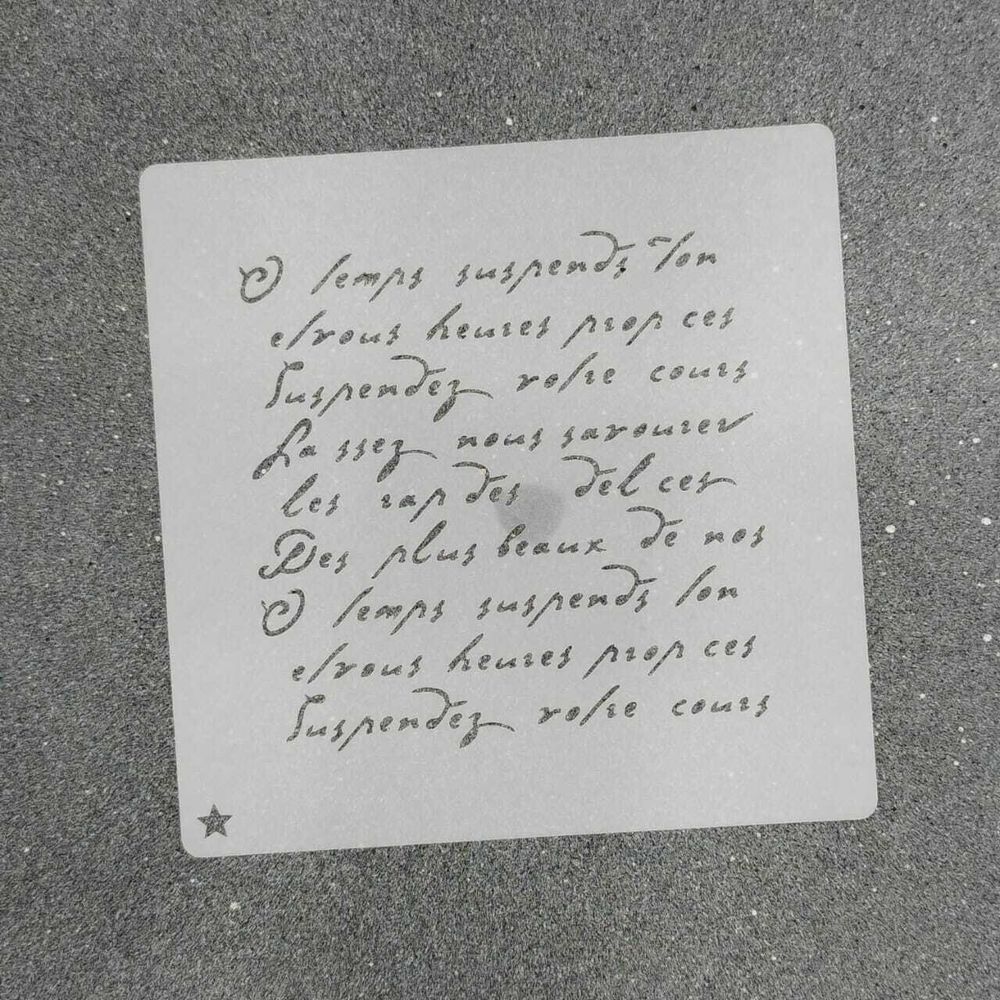 O temps suspends ton
et vous heures prop ces
Suspendez votre cours
La ssez nous savourer
les rap des del ces
Des plus beaux de nos
O temps suspends ton
et vous heures prop ces
Suspendez votre cours